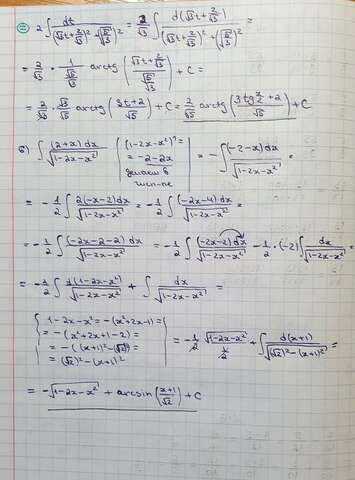 = 2 ∫ dt / ((√3t + 2/√3)² + (√5/√3)²) = 2/√3 ∫ d(√3t + 2/√3) / ((√3t + 2/√3)² + (√5/√3)²) =
= 2/√3 · 1/(√5/√3) arctg((√3t + 2/√3)/(√5/√3)) + C =
= 2/√3 · √3/√5 arctg((3t+2)/√5) + C = 2/√5 arctg((3tg x/2 + 2)/√5) + C
б) ∫ (2+x)dx/√(1-2x-x²) | (1-2x-x²)' = = -2-2x делаем в числ-ле | = -∫ (-2-x)dx/√(1-2x-x²) =
= -1/2 ∫ 2(-x-2)dx/√(1-2x-x²) = -1/2 ∫ (-2x-4)dx/√(1-2x-x²) =
= -1/2 ∫ (-2x-2-2)dx/√(1-2x-x²) = -1/2 ∫ (-2x-2)dx/√(1-2x-x²) - 1/2·(-2) ∫ dx/√(1-2x-x²) =
= -1/2 ∫ d(1-2x-x²)/√(1-2x-x²) + ∫ dx/√(1-2x-x²) =
1-2x-x² = -(x²+2x-1) =
= -(x²+2x+1-2) =
= -((x+1)²-(√2)²) =
= (√2)²-(x+1)²
= -1/2 √(1-2x-x²)/(1/2) + ∫ d(x+1)/√((√2)²-(x+1)²) =
= -√(1-2x-x²) + arcsin((x+1)/√2) + C